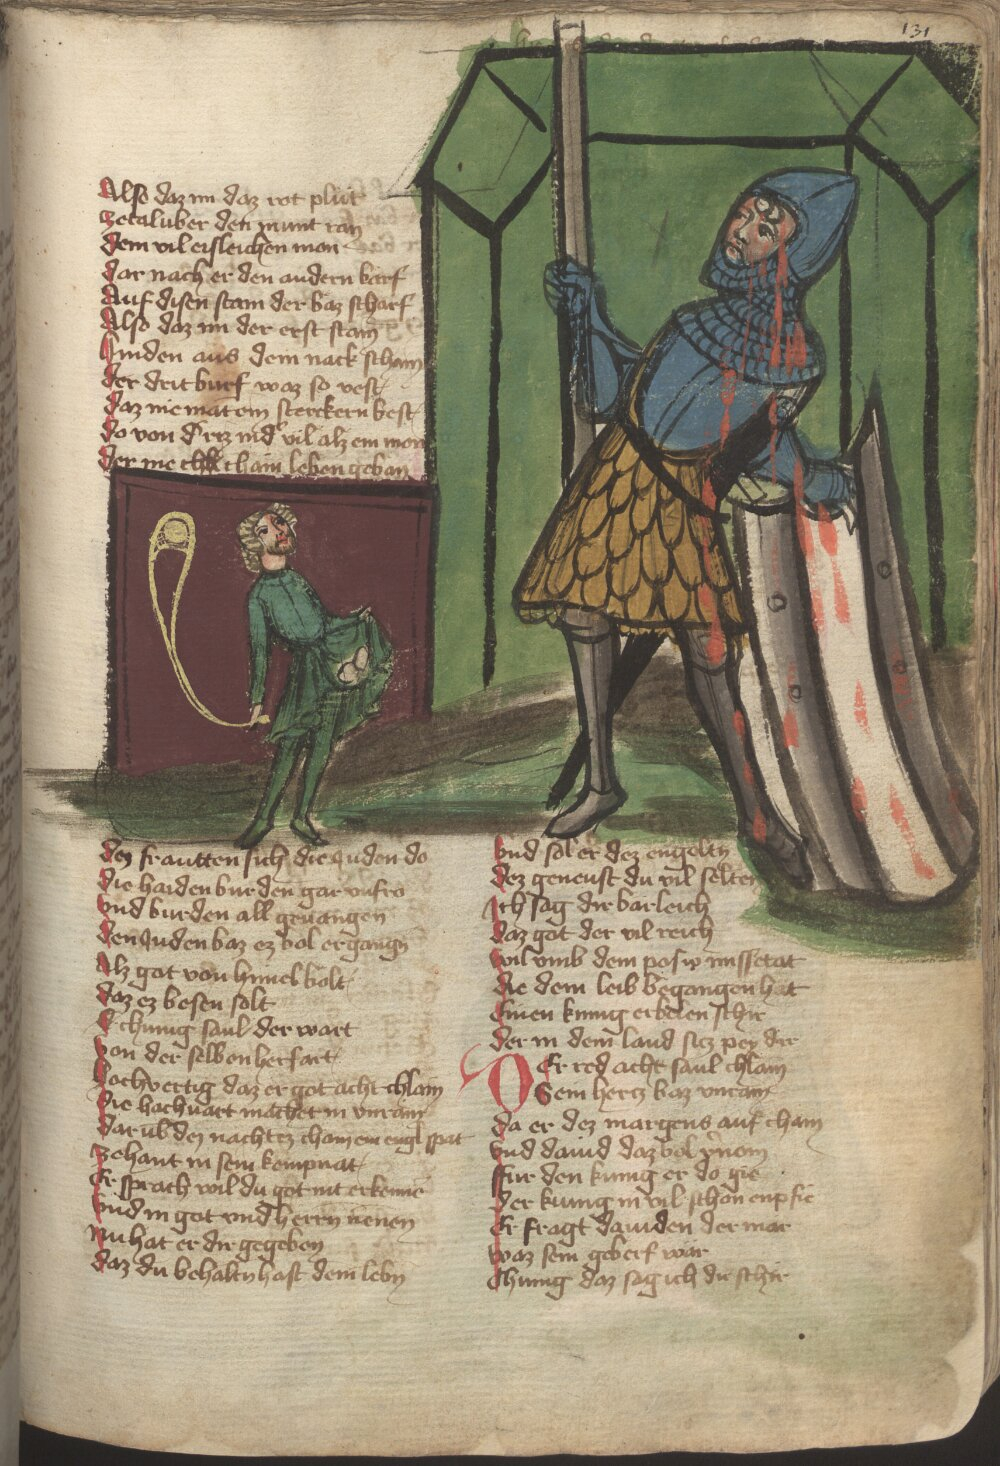 131
Also daz im daz rot plut
zetal uber den munt ran
dem vil eisleichen man
dar nach er den andern barf
Auf disen stain der baz scharf
Also daz im der erst stain
hinden aus dem nack schain
der drit burf waz so vest
daz nie mat ein sterckern best
do von
der me chain leben geban
dez frautten sich die iuden do
die haiden burden gar unfro
vnd burden all geuangen
den Juden baz ez bol ergangn
Alz got von himel bolt
daz ez besen solt
chunig saul der wart
von der selben herfart
hochvertig daz er got acht chlain
die hachuart machet in vnrain
dar vb dez nachtez cham ein engl spat
zehant in sein kempnat
Er sprach wil du got nit erkenne
vnd in got vnd herrn nenen
Nu hat er dir gegeben
daz du behaltn hast dein lebn
vnd sol er dez engeltn
dez geneust du vil selten
Ich sag dir barleich
daz got der vil reich
wil vmb dein posw missetat
die dein leib begangen hat
Einen kunig erbelen schir
der in dem land sicz pey dir
Der red acht saul chlain
Sein hercz baz vnrain
da er dez margens auf cham
vnd dauid daz bol vernam
fur den kunig er do gie
der kunig in vil schon enpfie
Er fragt dauiden der mar
waz sein geberf war
Chunig daz sag ich dir schir